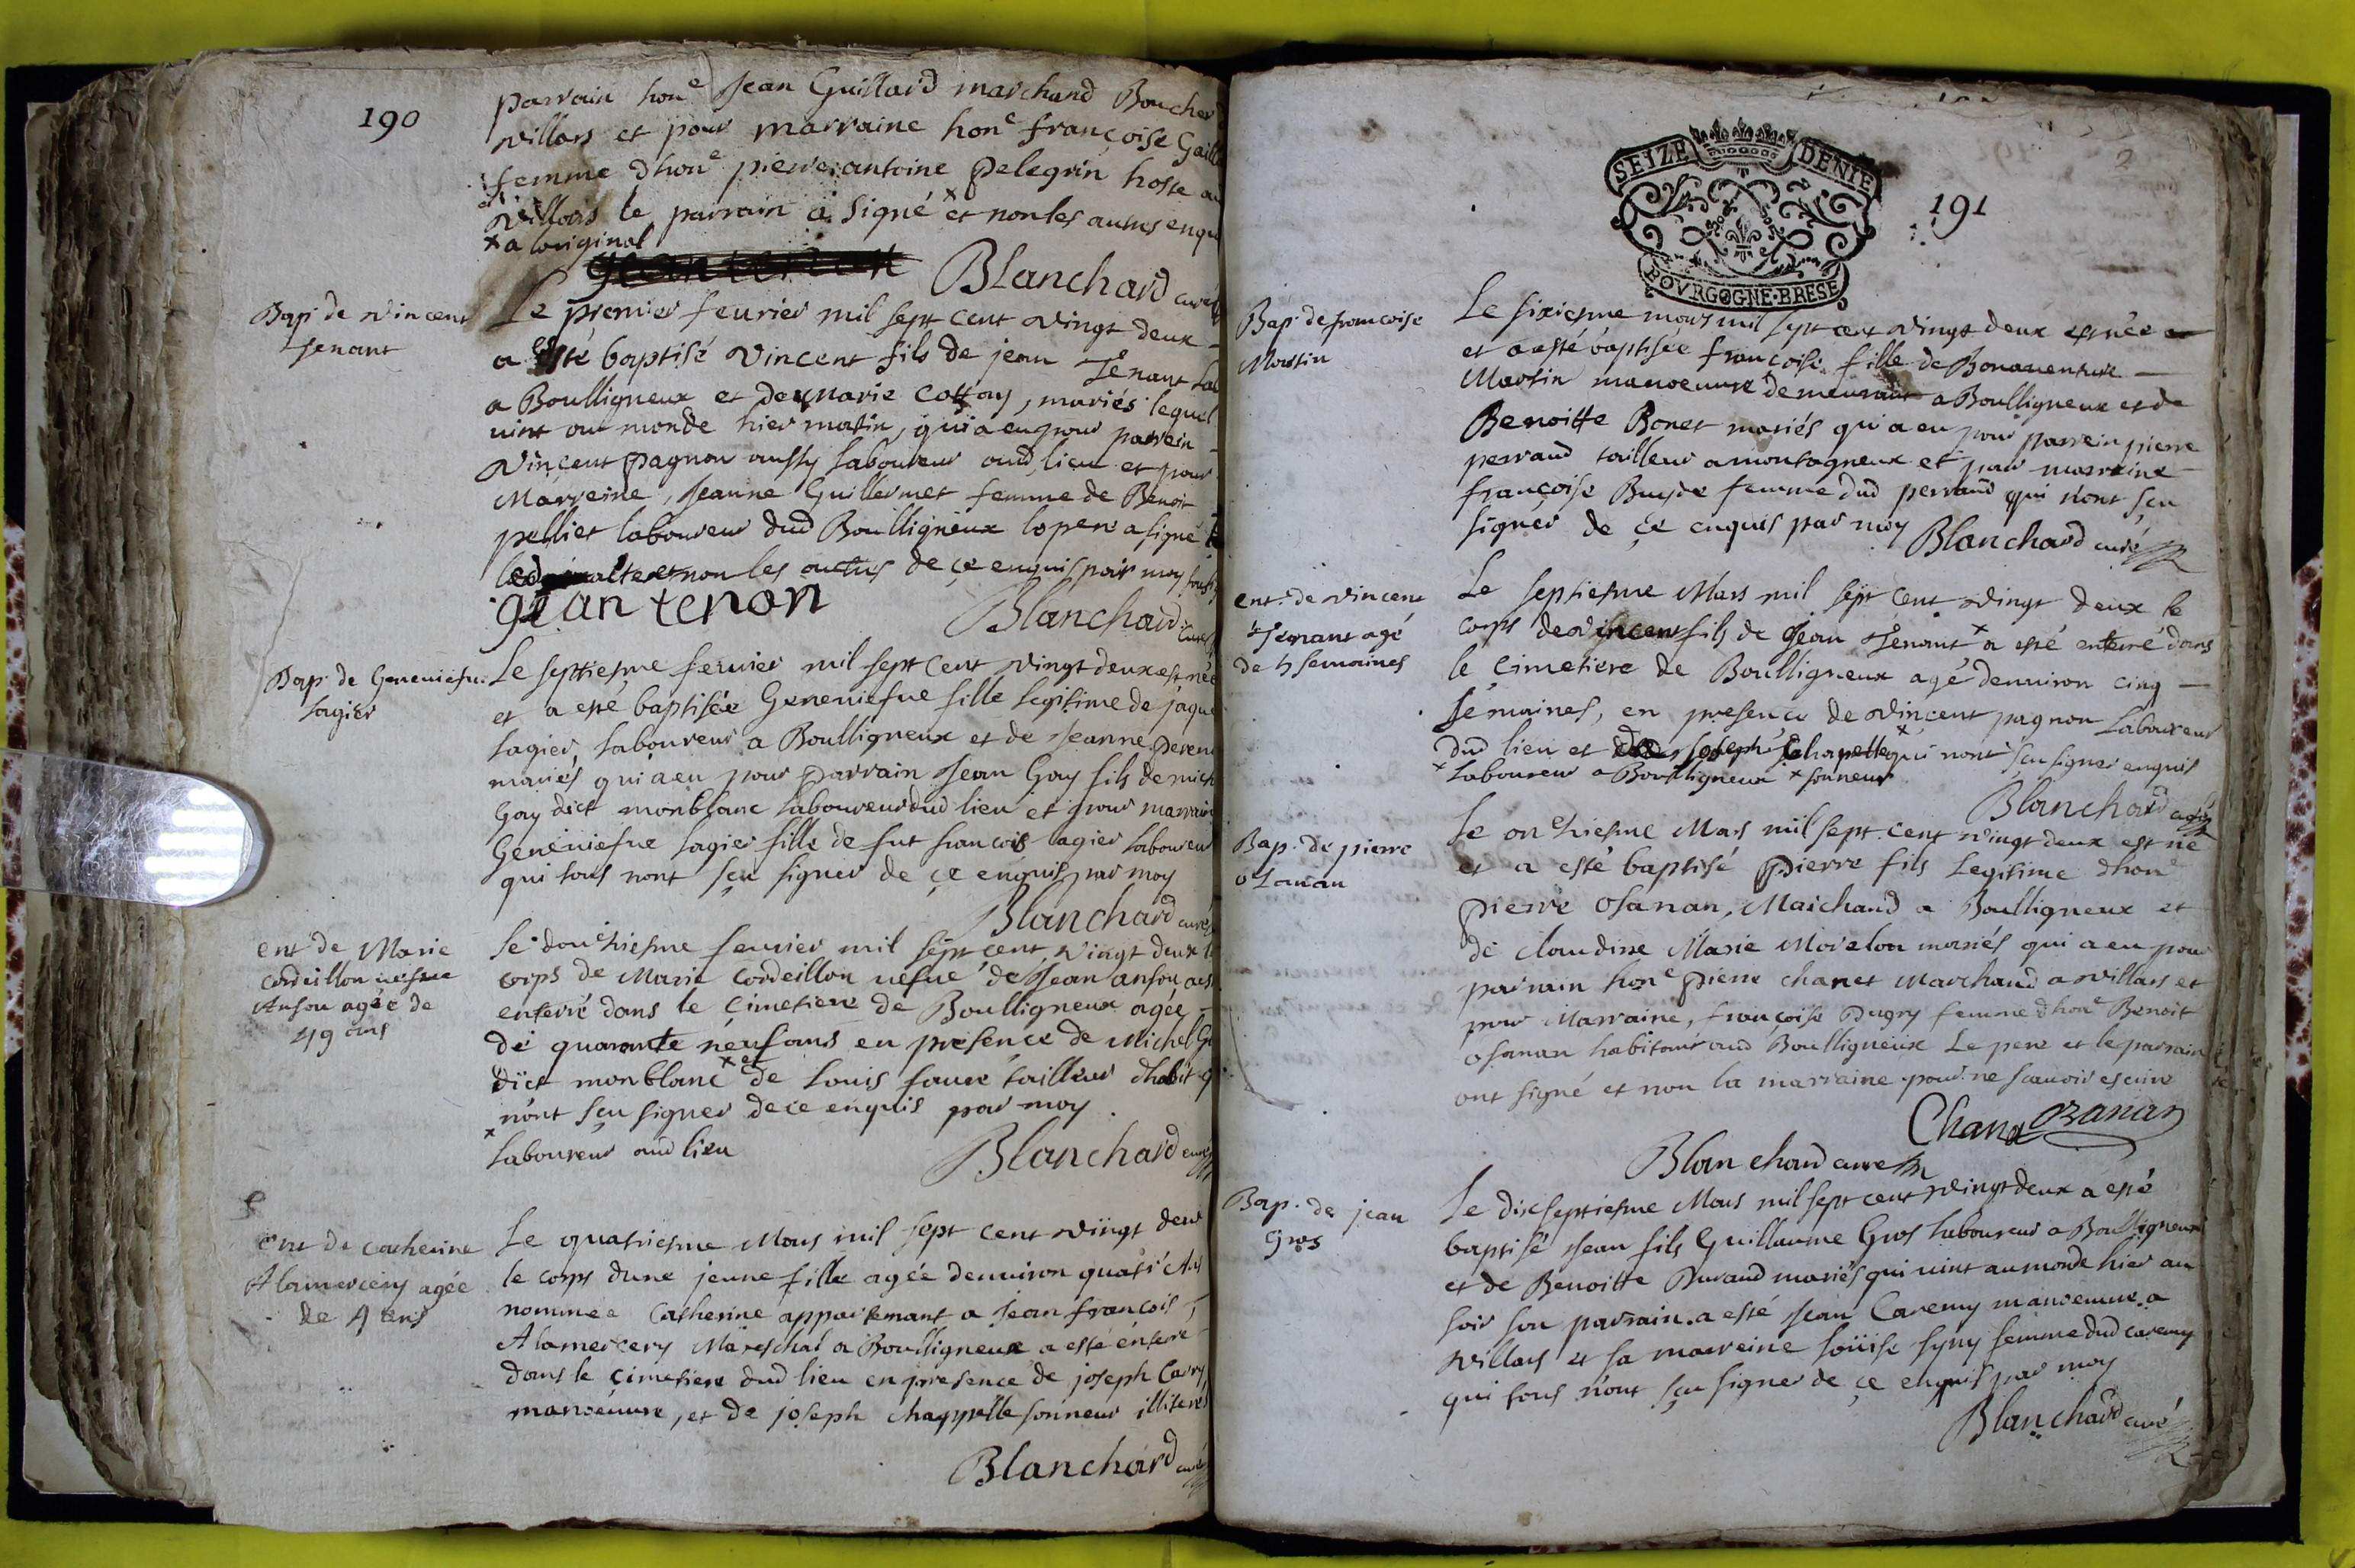 190
parrain hon^e Jean Guillard marchand Boucher
villars et pour marraine hon^e françoise
femme dhon^e pierre antoine pelegrin hoste
villars le parrain a signé x et non les autres enquis
x a loriginal
Blanchard curé
Bap. de vincent
tenant
Le premier feurier mil sept cent vingt deux
a esté baptisé vincent fils de jean tenant
a Boulligneux et de marie cottay, mariés lequel
vint au monde hier matin, qui a eu pour parrein
vincent pagnon aussy laboureur aud lieu et pour
Marreine, Jeanne Guillermet femme de Benoit
pellier laboureur dud Boulligneux le pere a signé
et non les autres de ce enquis par moy
gean tenon
Blanchard curé
Bap. de Geneuiefue
lagier
Le septiesme feurier mil sept cent vingt deux est née
et a esté baptisée Geneuiefue fille legitime de jaque
lagier, laboureur a Boulligneux et de jeanne
mariés qui a eu pour parrain Jean Gay fils de
Gay dict monblanc laboureur dud lieu et pour marraine
Geneuiefue lagier fille de fut francois lagier laboureur
qui tous nont sçu signer de ce enquis par moy
Blanchard curé
ent de Marie
cordeillon uefue
Anfou agée de
49 ans
Le douzhiesme feurier mil sept cent vingt deux le
corps de Marie cordeillon uefue de Jean anfou
enterré dans le cimetiere de Boulligneux agée
de quarante neuf ans en presence de Michel
dict monblanc x et de Louis faure tailleur dhabit
nont sçu signer de ce enquis par moy
x laboureur aud lieu
Blanchard curé
ent de catherine
Alamercery agée
de 4 ans
Le quatriesme Mars mil sept cent vingt deux
le corps dune jeune fille agée denuiron quatre Ans
nommée Catherine appartenant a Jean françois
Alamercery Mareschal a Boulligneux a esté enterré
dans le cimetiere dud lieu en presence de joseph
manoeuure, et de joseph chappelle sonneur
Blanchard curé
SEIZE DENIE
BOVRGOGNE·BRESE
191
Bap. de francoise
Martin
Le sixiesme mars mil sept cent vingt deux est née
et a esté baptisée francoise fille de Bonauenture
Martin manoeuure demeurant a Boulligneux et de
Benoitte Bonet mariés qui a eu pour parrein pierre
perraud tailleur a montagneux et pour marreine
françoise femme dud perraud qui n'ont sçu
signer de ce enquis par moy Blanchard curé
ent. de vincent
tenant agé
de 5 semaines
Le septiesme Mars mil sept cent vingt deux le
corps de vincent fils de Jean tenant x a esté enterré dans
le cimetiere de Boulligneux agé denuiron cinq
semaines, en presence de vincent pagnon Laboureur
dud lieu et joseph chapelle x qui nont sçu signer enquis
x laboureur a Boulligneux x sonneur
Blanchard curé
Bap. de pierre
osanan
Le onzhiesme Mars mil sept cent vingt deux est né
et a esté baptisé pierre fils Legitime dhon^e
pierre osanan, Marchand a Boulligneux et
de claudine Marie Morelon mariés qui a eu pour
parrain hon^e pierre chanet Marchand a villars et
pour Marraine, françoise Dugry femme dhon^e Benoit
osanan habitant aud Boulligneux Le pere et le parrain
ont signé et non la marraine pour ne scauoir escrire
Chanet Ozanan
Blanchard curé
Bap. de jean
gros
Le dixseptiesme Mars mil sept cent vingt deux a esté
baptisé Jean fils Guillaume Gros laboureur a Boulligneux
et de Benoitte Durand mariés qui vint au monde hier au
soir son parrain a esté Jean Caremy manoeuure a
villars et sa marreine loüise femme dud caremy
qui tous n'ont sçu signer de ce enquis par moy
Blanchard curé